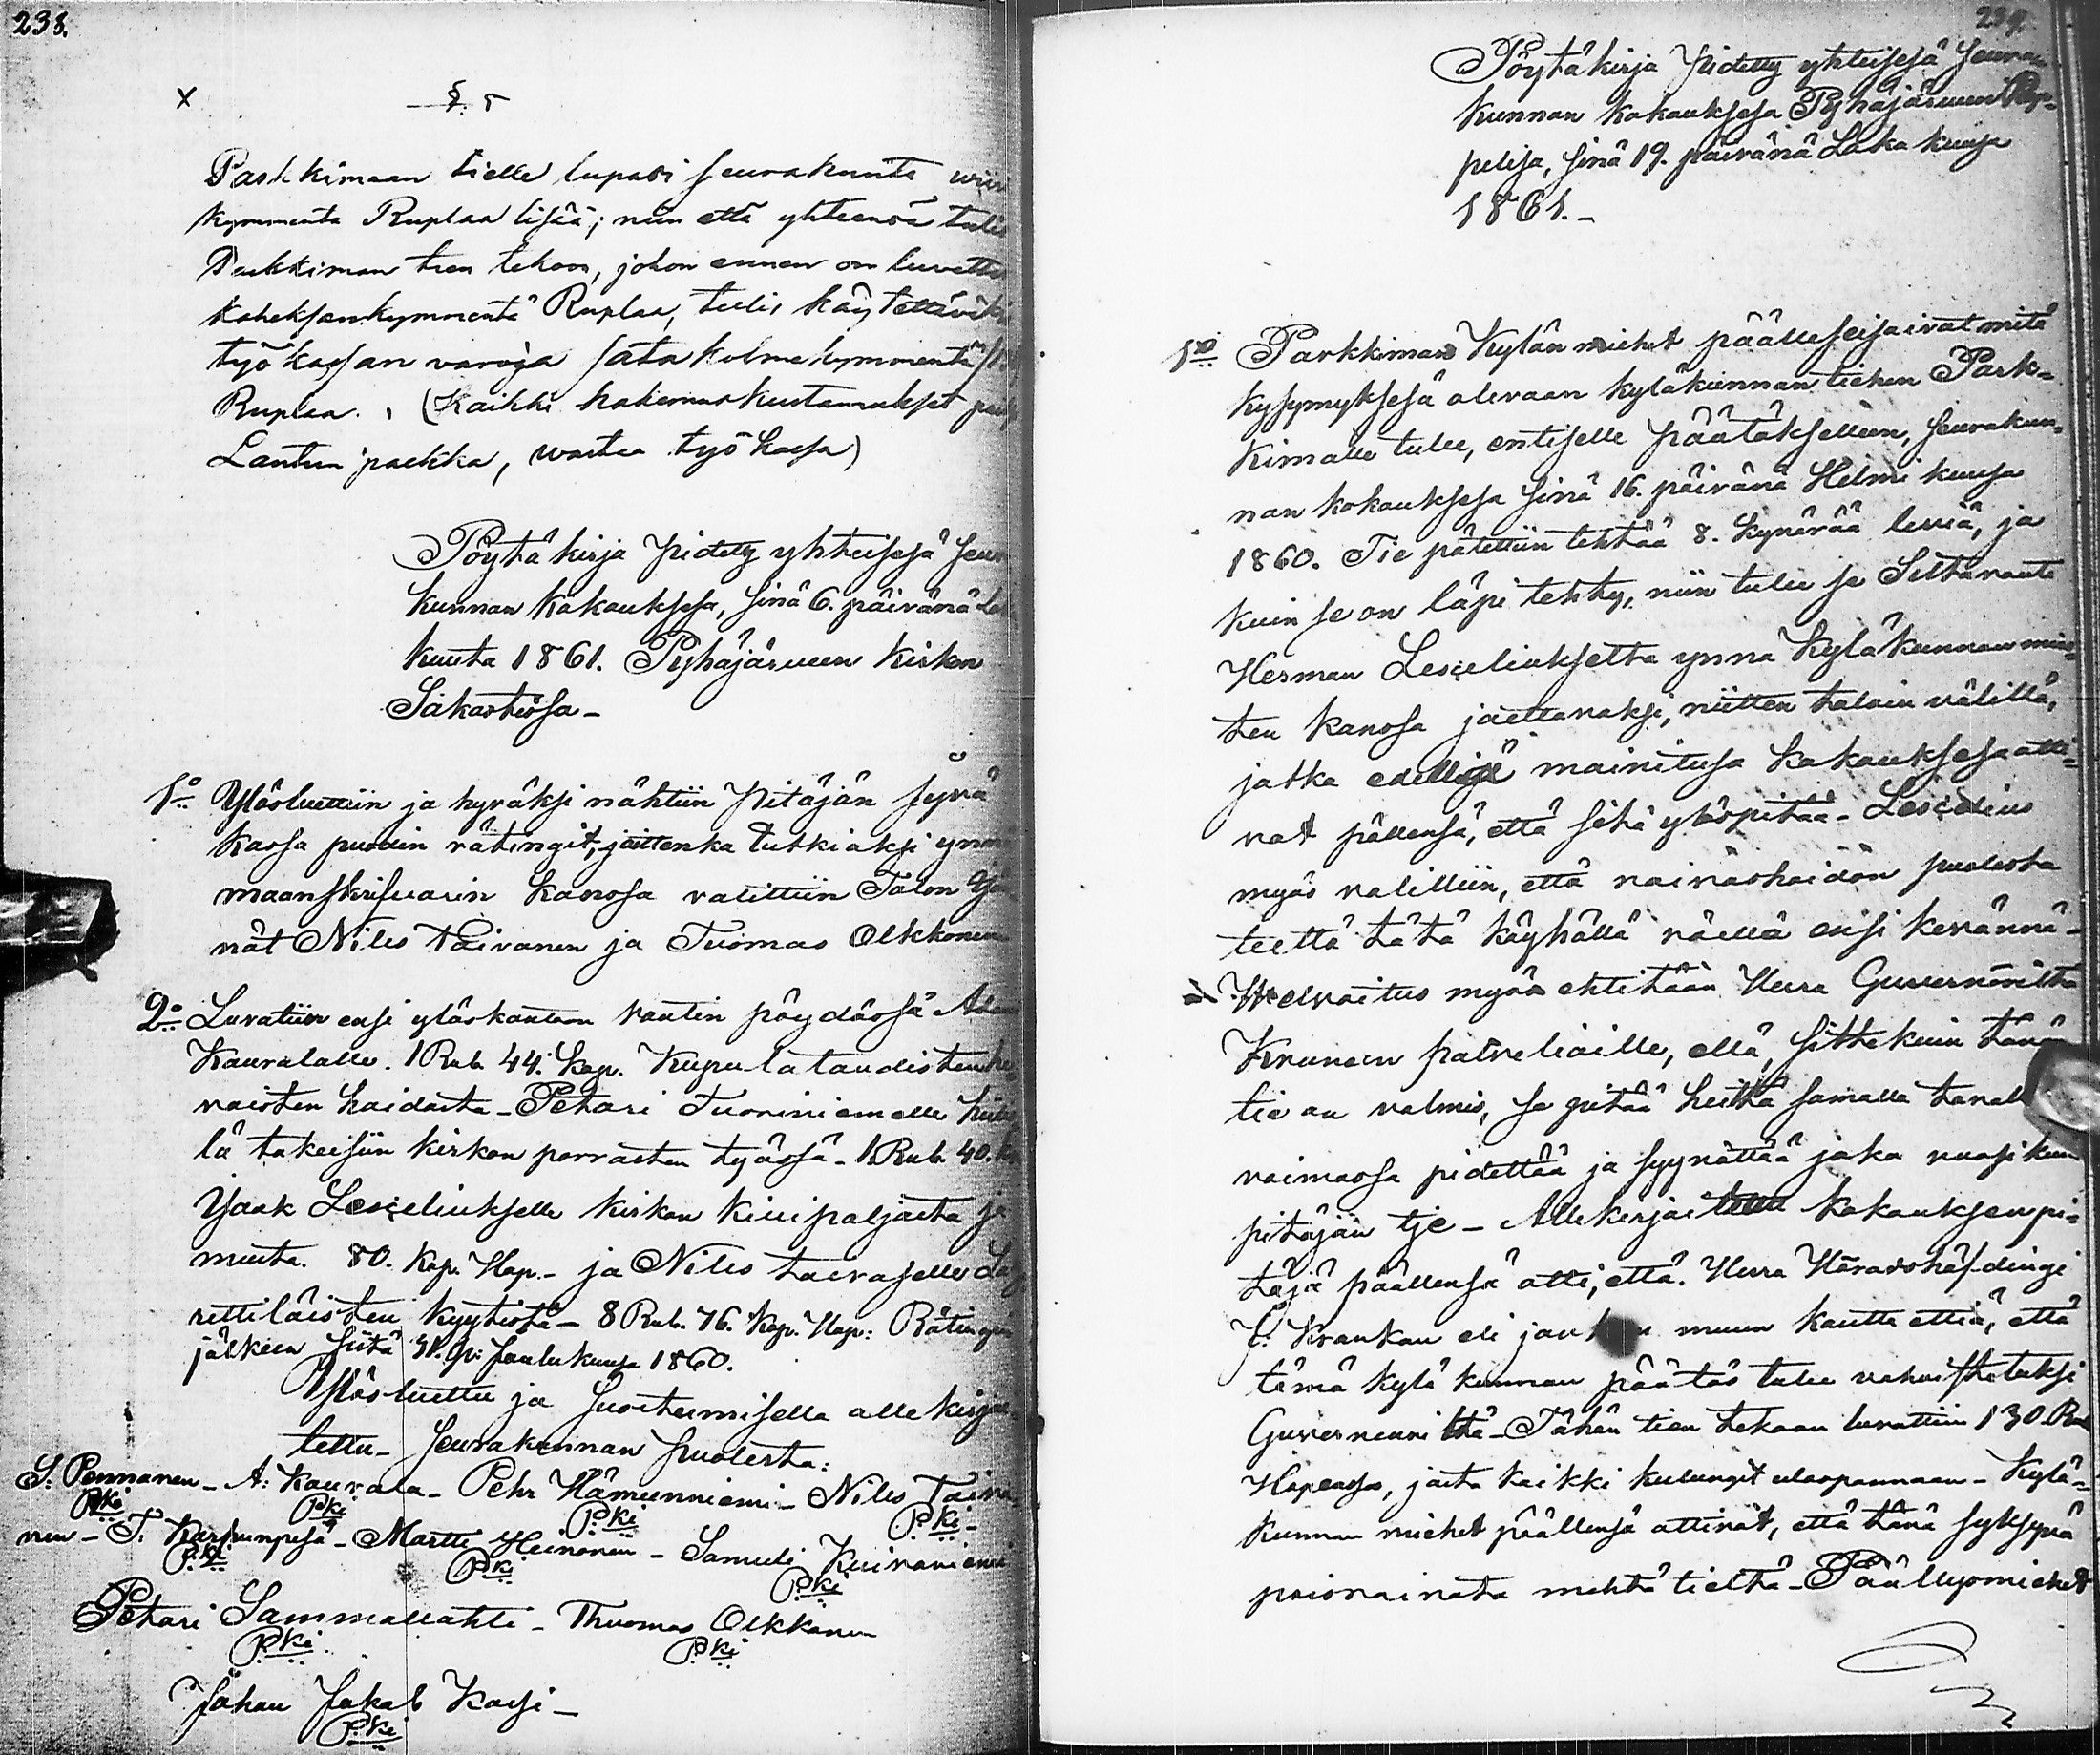 238.
x § 5
Parkkimaan tielle lupasi seurakunta wiisi
kymmentä Ruplaa lisää; niin että yhteensä tulis
Parkkiman tien tekoon, johon ennen on luvattu
kaheksankymmentä Ruplaa, tulis käytettäväksi
työ kassan varoja sata kolmekymmentä
Ruplaa. (Kaikki hakemus kustannukset
Lantun palkka, wastaa työ kassa)
Pöytäkirja pidetty yhteisesä Seura
kunnan kokouksesa, sinä 6. päivänä
kuuta 1861. Pyhäjärwen kirkon
Sakastiosa -
1o Ylösluettiin ja hyväksi nähtiin pitäjän jyvä
kassa puodin rätingit, joittenka tutkiaksi ynnä
maanskrifvarin kanssa valittiin Talon Isän
nät Niles Taivanen ja Tuomas Olkkonen
2o Luvatiin ensi ylöskantoon vautin pöydässä
Kauralalle. 1 Rub. 44. Kop. Kupulatautisten
vaisten hoidosta - Petari Tuoriniemelle
lä takeisiin kirkon porrasten työssä - 1. Rub. 40.
Isaak Lesceliukselle kirkon
muuta. 80. Kop. Hop. - ja Niles taivaselle
rettiläisten kyytistä - 8 Rub. 76. Kop. Hop: Rätingin
jälkeen siitä 31. p: Joulukuusa 1860.
Ylösluettu ja Suostumisella allekirjoi
tettu - Seurakunnan puolesta:
S: Pennanen - A: Kaurala - Pehr Hämeenniemi - Niles Taiva
Pki Pki Pki Pki
nen - T. Karhunpesä - Martti Heinonen - Samuli Kuivaniemi
Pki Pki Pki
Petari Sammallahti - Thuomas Olkkonen
Pki Pki
Johan Jakob Karsi -
Pki
239.
Pöytäkirja pidetty yhteisesä Seura
kunnan kokouksesa Pyhäjärwen Kap-
pelisa, sinä 19. päivänä Loka kuusa
1861. -
1o Parkkiman Kylän miehet päälleseisoivat mitä
kysymyksesä olevaan kyläkunnan tiehen Park-
kimalle tulee, entiselle päätökselleen, seurakun-
nan kokouksesa sinä 16. päivänä Helmi kuusa
1860. Tie pätettiin tehtää 8. kynärää leviä, ja
kuin se on läpi tehty, niin tulee se Siltavouti
Herman Lesceliukselta ynnä kyläkunnan mies-
ten kanssa jaettavaksi, niitten taloin välillä,
jotka edellisä mainitusa kokouksesa otti-
vat pällensä, että sitä ylöspitää - Lescelius
myös valittiin, että vaivashoidon puolesta
teettä tätä köyhällä väellä ensi kevännä -
Welvoitus myös ehtitään Herra Guvernöriltä
Kruunun palvelioille, että, sittekuin tämä
tie on valmis, se pitää heiltä samalla tavalla
voimassa pidettää ja syynättää joka vuosi kuin
pitäjän tje - Allekirjoitettu kokouksen pi-
täjä päällensä otti, että Herra Häradshöfdingi
J: Krankan eli jonkun muun kautta ettiä, että
tämä kylä kunnan päätös tulee vahvistetuksi
Guverneuriltä - Tähän tien tekoon luvattiin 130 Rub
Hopeassa, josta kaikki kulungit ulospannaan - Kylä-
kunnan miehet päällensä ottivat, että tänä syksynä
poisraivata mehtä tieltä - Päällysmiehet